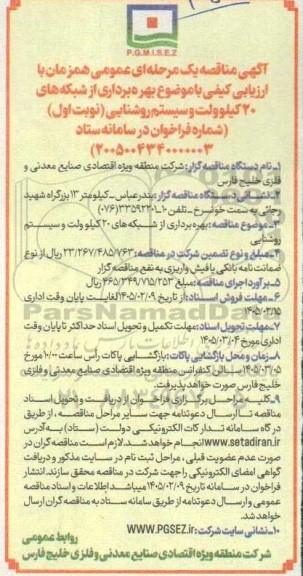 P.G.M.I.S.E.Z
آگهی مناقصه یک مرحله ای عمومی همزمان با
ارزیابی کیفی با موضوع بهره برداری از شبکه های
۲۰ کیلوولت و سیستم روشنایی (نوبت اول)
(شماره فراخوان در سامانه ستاد
۲۰۰۵۰۰۴۳۴۰۰۰۰۰۳)
۱_نام دستگاه مناقصه گزار: شرکت منطقه ویژه اقتصادی صنایع معدنی و
فلزی خلیج فارس
۲_نشانی دستگاه مناقصه گزار: بندرعباس_کیلومتر ۱۳ بزرگراه شهید
رجائی به سمت خونسرخ_تلفن ۱۰_۳۳۵۹۲۲۰۱(۰۷۶)
۳_موضوع مناقصه: بهره برداری از شبکه های ۲۰ کیلو ولت و سیستم
روشنایی
۴_مبلغ و نوع تضمین شرکت در مناقصه: ۲۳/۲۶۷/۴۸۵/۷۶۳ ریال از نوع
ضمانت نامه بانکی یا فیش واریزی به نفع مناقصه گزار
۵_برآورد اجرای مناقصه: مبلغ ۴۶۵/۳۴۹/۷۱۵/۲۵۳ ریال
۶_مهلت فروش اسناد: از تاریخ ۱۴۰۵/۰۲/۰۹ لغایت پایان وقت اداری
۱۴۰۵/۰۲/۱۵
۷_مهلت تحویل اسناد: مهلت تکمیل و تحویل اسناد حداکثر تا پایان وقت
اداری مورخ ۱۴۰۵/۰۳/۰۴
۸_زمان و محل بازگشایی پاکات: بازگشایی پاکات رأس ساعت ۱۰:۰۰ مورخ
۱۴۰۵/۰۳/۰۵ سالن کنفرانس منطقه ویژه اقتصادی صنایع معدنی و فلزی
خلیج فارس صورت خواهد پذیرفت.
۹_کلیه مراحل برگزاری فراخوان از دریافت و تحویل اسناد
مناقصه تا ارسال دعوتنامه جهت سایر مراحل مناقصه، از طریق
درگاه سامانه تدارکات الکترونیکی دولت (ستاد) به آدرس
www.setadiran.ir انجام خواهد شد. لازم است مناقصه گران در
صورت عدم عضویت قبلی، مراحل ثبت نام در سایت مذکور و دریافت
گواهی امضای الکترونیکی را جهت شرکت در مناقصه محقق سازند. انتشار
فراخوان در سامانه تاریخ ۱۴۰۵/۰۲/۰۹ میباشد اطلاعات و اسناد مناقصه
عمومی و ارسال دعوتنامه از طریق سامانه ستاد به مناقصه گران ارسال
خواهد شد.
۱۰_نشانی سایت شرکت: WWW.PGSEZ.ir
روابط عمومی
شرکت منطقه ویژه اقتصادی صنایع معدنی و فلزی خلیج فارس